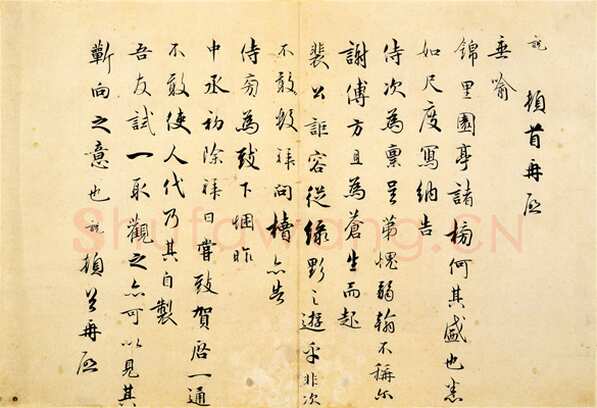 說 頓首再啟
垂喻
錦里園亭諸榜何其盛也悉
如尺度寫納告
侍次為稟呈第愧弱翰不稱尔
謝傅方且為蒼生而起
裴公詎容從綠野之遊乎非次
不敢輒拜問櫝亦告
侍旁為致下悃昨
中丞初除拜日嘗致賀啓一通
不敢使人代乃其自製
吾友試一取觀之亦可以見其
蘄向之意也說頓首再啟
Shufawang.CN